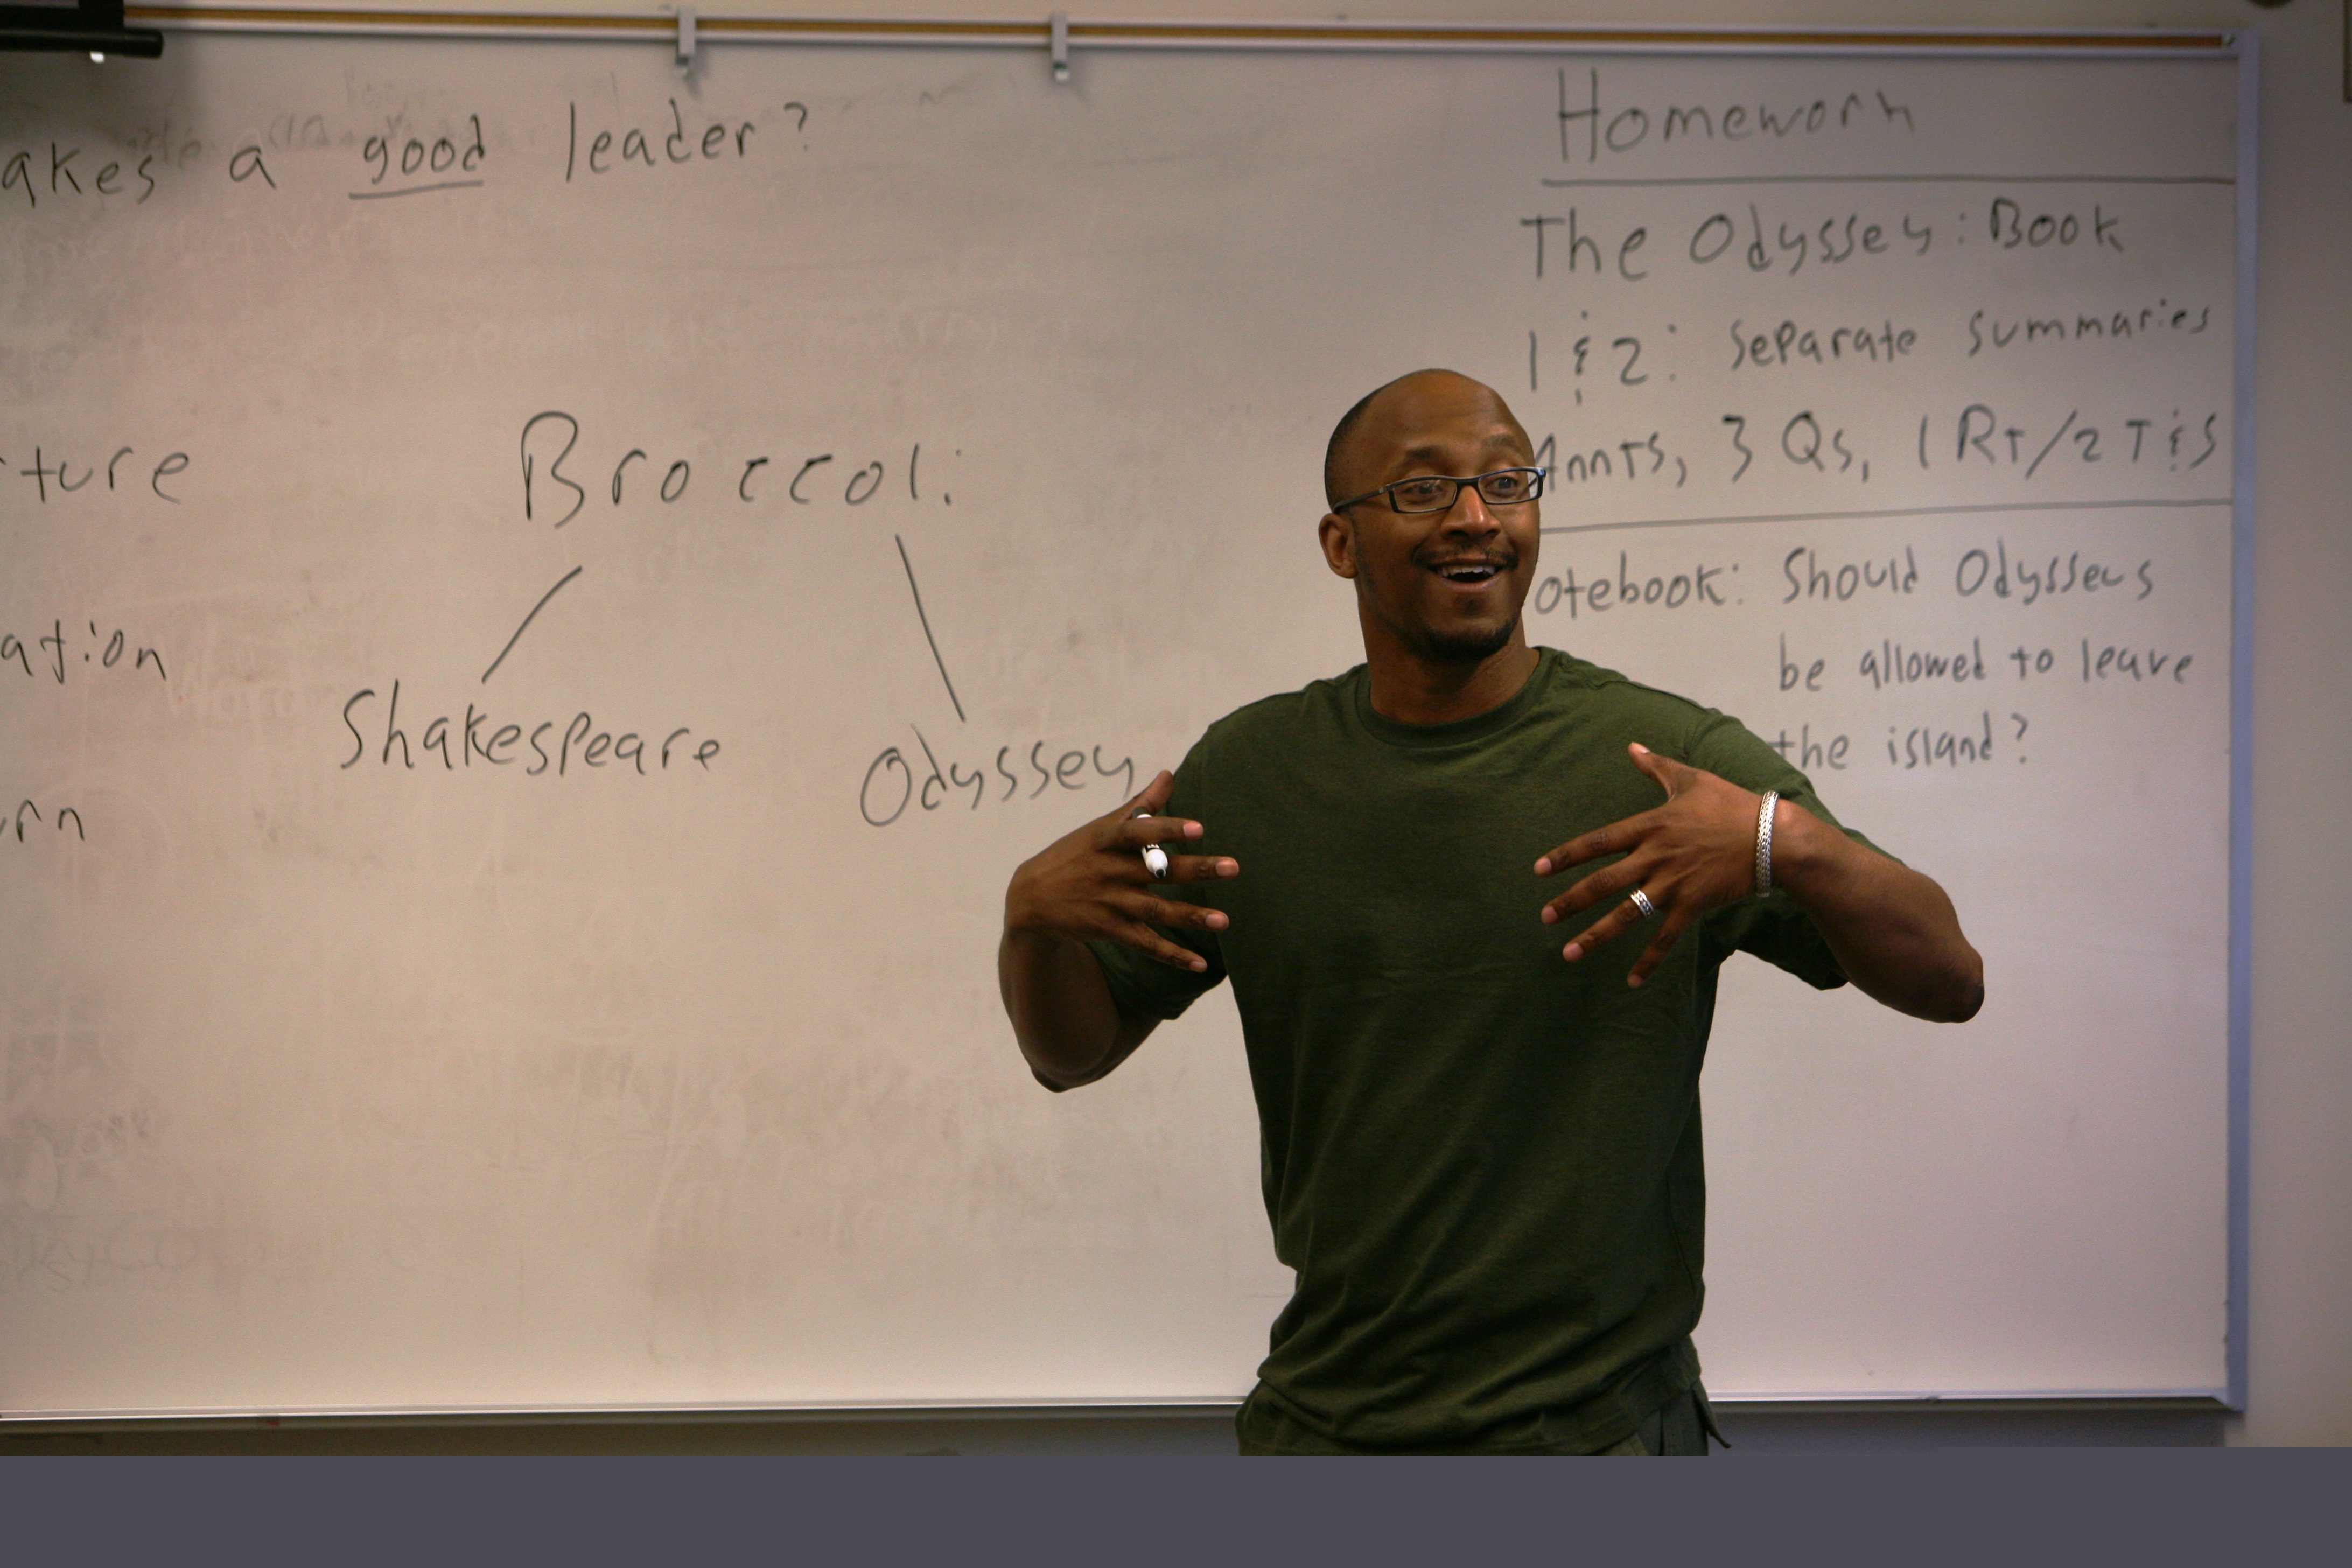 akes a good leader?
ture
ation
rn
Broccoli
Shakespeare
Odyssey
Homework
The Odyssey: Book
1 & 2: Separate Summaries
Annts, 3 Qs, 1 RT/2 T&S
otebook: Should Odysseus
be allowed to leave
the island?